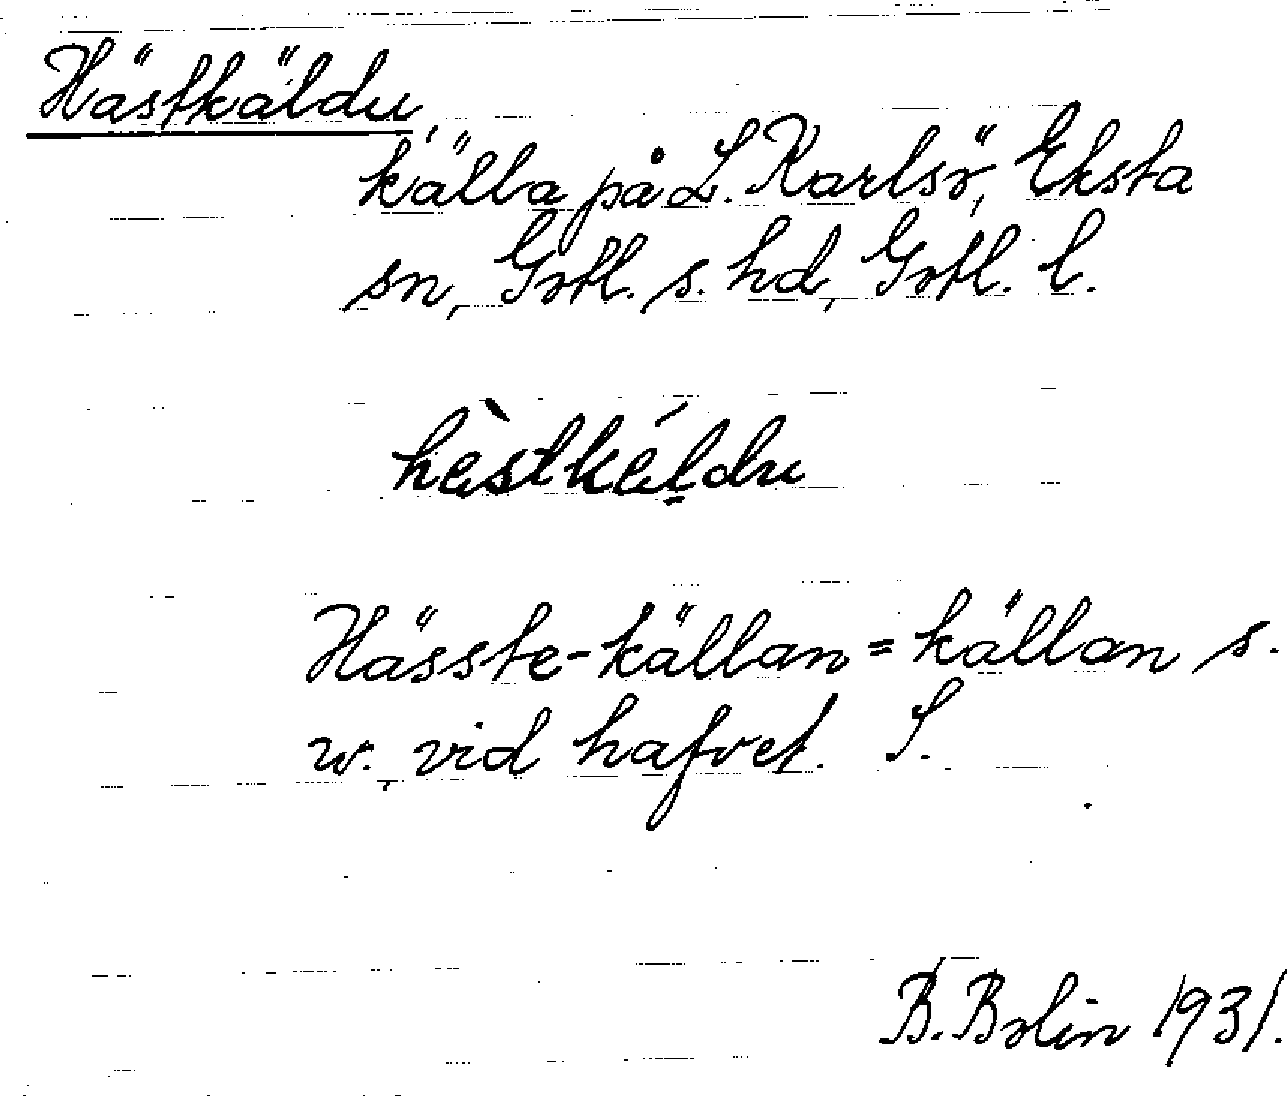 Hästkäldu,
källa på L. Karlsö, Eksta
sn, Gotl. s. hd, Gotl. l.
hèstkéḷdu
Hässte-källan = källan s.
w., vid hafvet. S.
B. Bolin 1931.